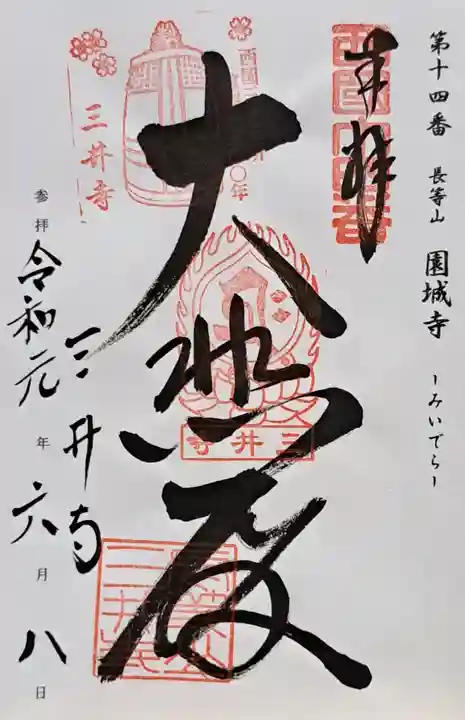 第十四番 長等山 園城寺 -みいでら-
奉拝
西國十四番
大悲殿
三井寺
三井寺
三井寺
参拝 令和元年六月八日